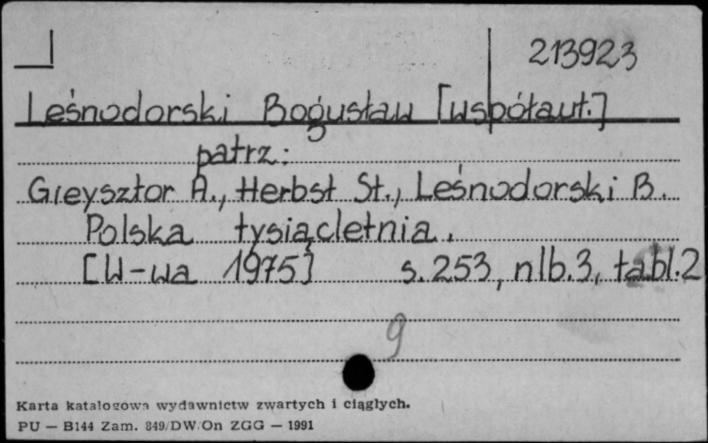 213923
Leśnodorski Bogusław [współaut.]
patrz:
Gieysztor A., Herbst St., Leśnodorski B.
Polska tysiącletnia.
[W-wa 1975] s. 253, nlb. 3, tabl. 2
g
Karta katalogowa wydawnictw zwartych i ciągłych.
PU — B144 Zam. 849/DW/On ZGG — 1991